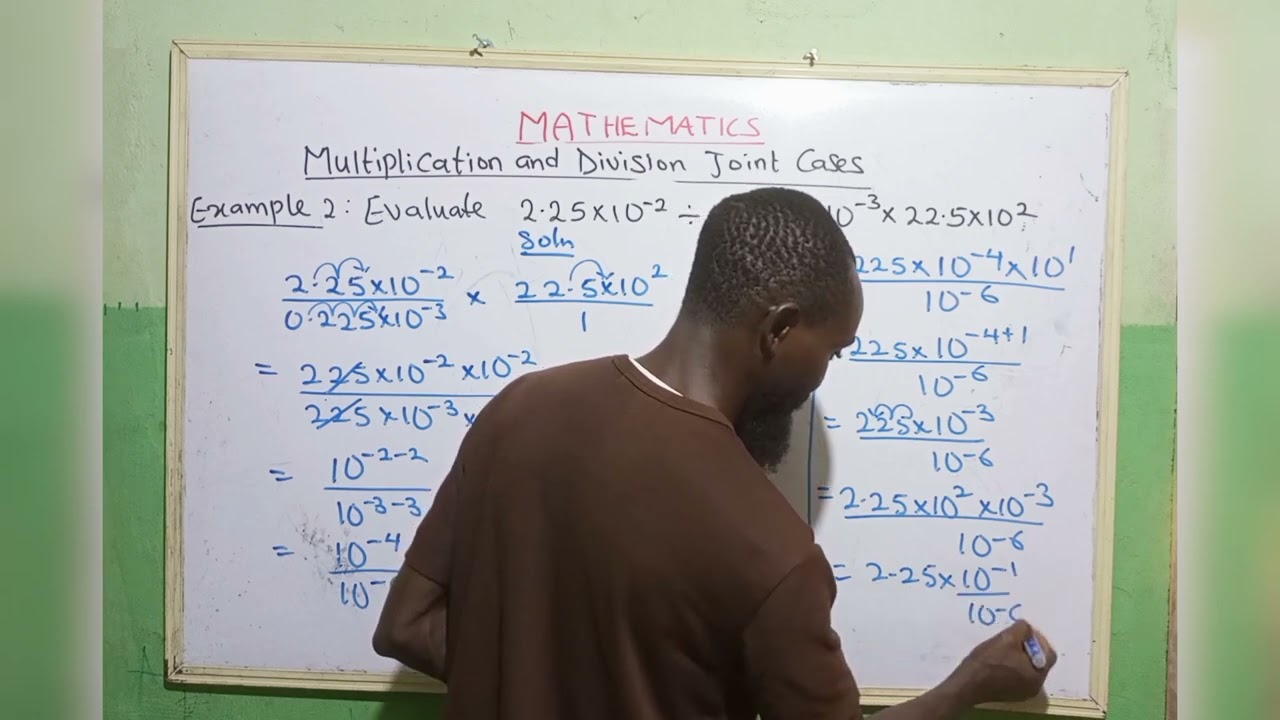 MATHEMATICS
Multiplication and Division Joint Cases
Example 2: Evaluate 2.25×10⁻² ÷ 10⁻³ × 22.5×10²
Soln
2.25×10⁻² / 0.225×10⁻³ × 22.5×10² / 1
= 225×10⁻² ×10⁻² / 225×10⁻³ ×
= 10⁻²⁻² / 10⁻³⁻³
= 10⁻⁴ / 10⁻
225×10⁻⁴×10¹ / 10⁻⁶
225×10⁻⁴⁺¹ / 10⁻⁶
= 225×10⁻³ / 10⁻⁶
= 2.25×10²×10⁻³ / 10⁻⁶
= 2.25×10⁻¹ / 10⁻⁶